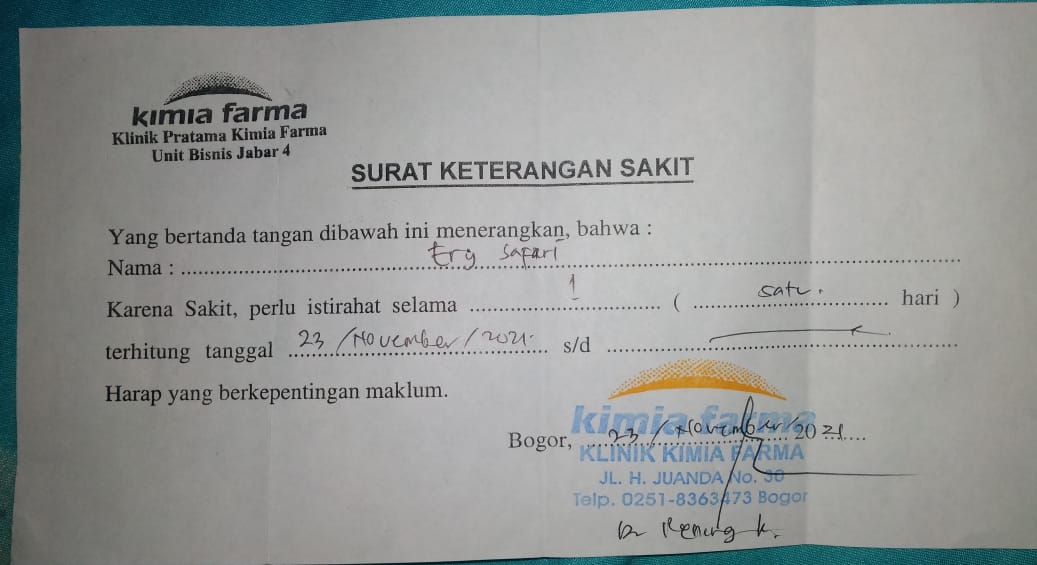 kimia farma
Klinik Pratama Kimia Farma
Unit Bisnis Jabar 4
SURAT KETERANGAN SAKIT
Yang bertanda tangan dibawah ini menerangkan, bahwa :
Nama : Ery Safari
Karena Sakit, perlu istirahat selama 1 ( satu. hari )
terhitung tanggal 23 /November/2021. s/d
Harap yang berkepentingan maklum.
kimia farma
Bogor, 23 /November/2021
KLINIK KIMIA FARMA
JL. H. JUANDA No. 30
Telp. 0251-8363473 Bogor
Dr K.